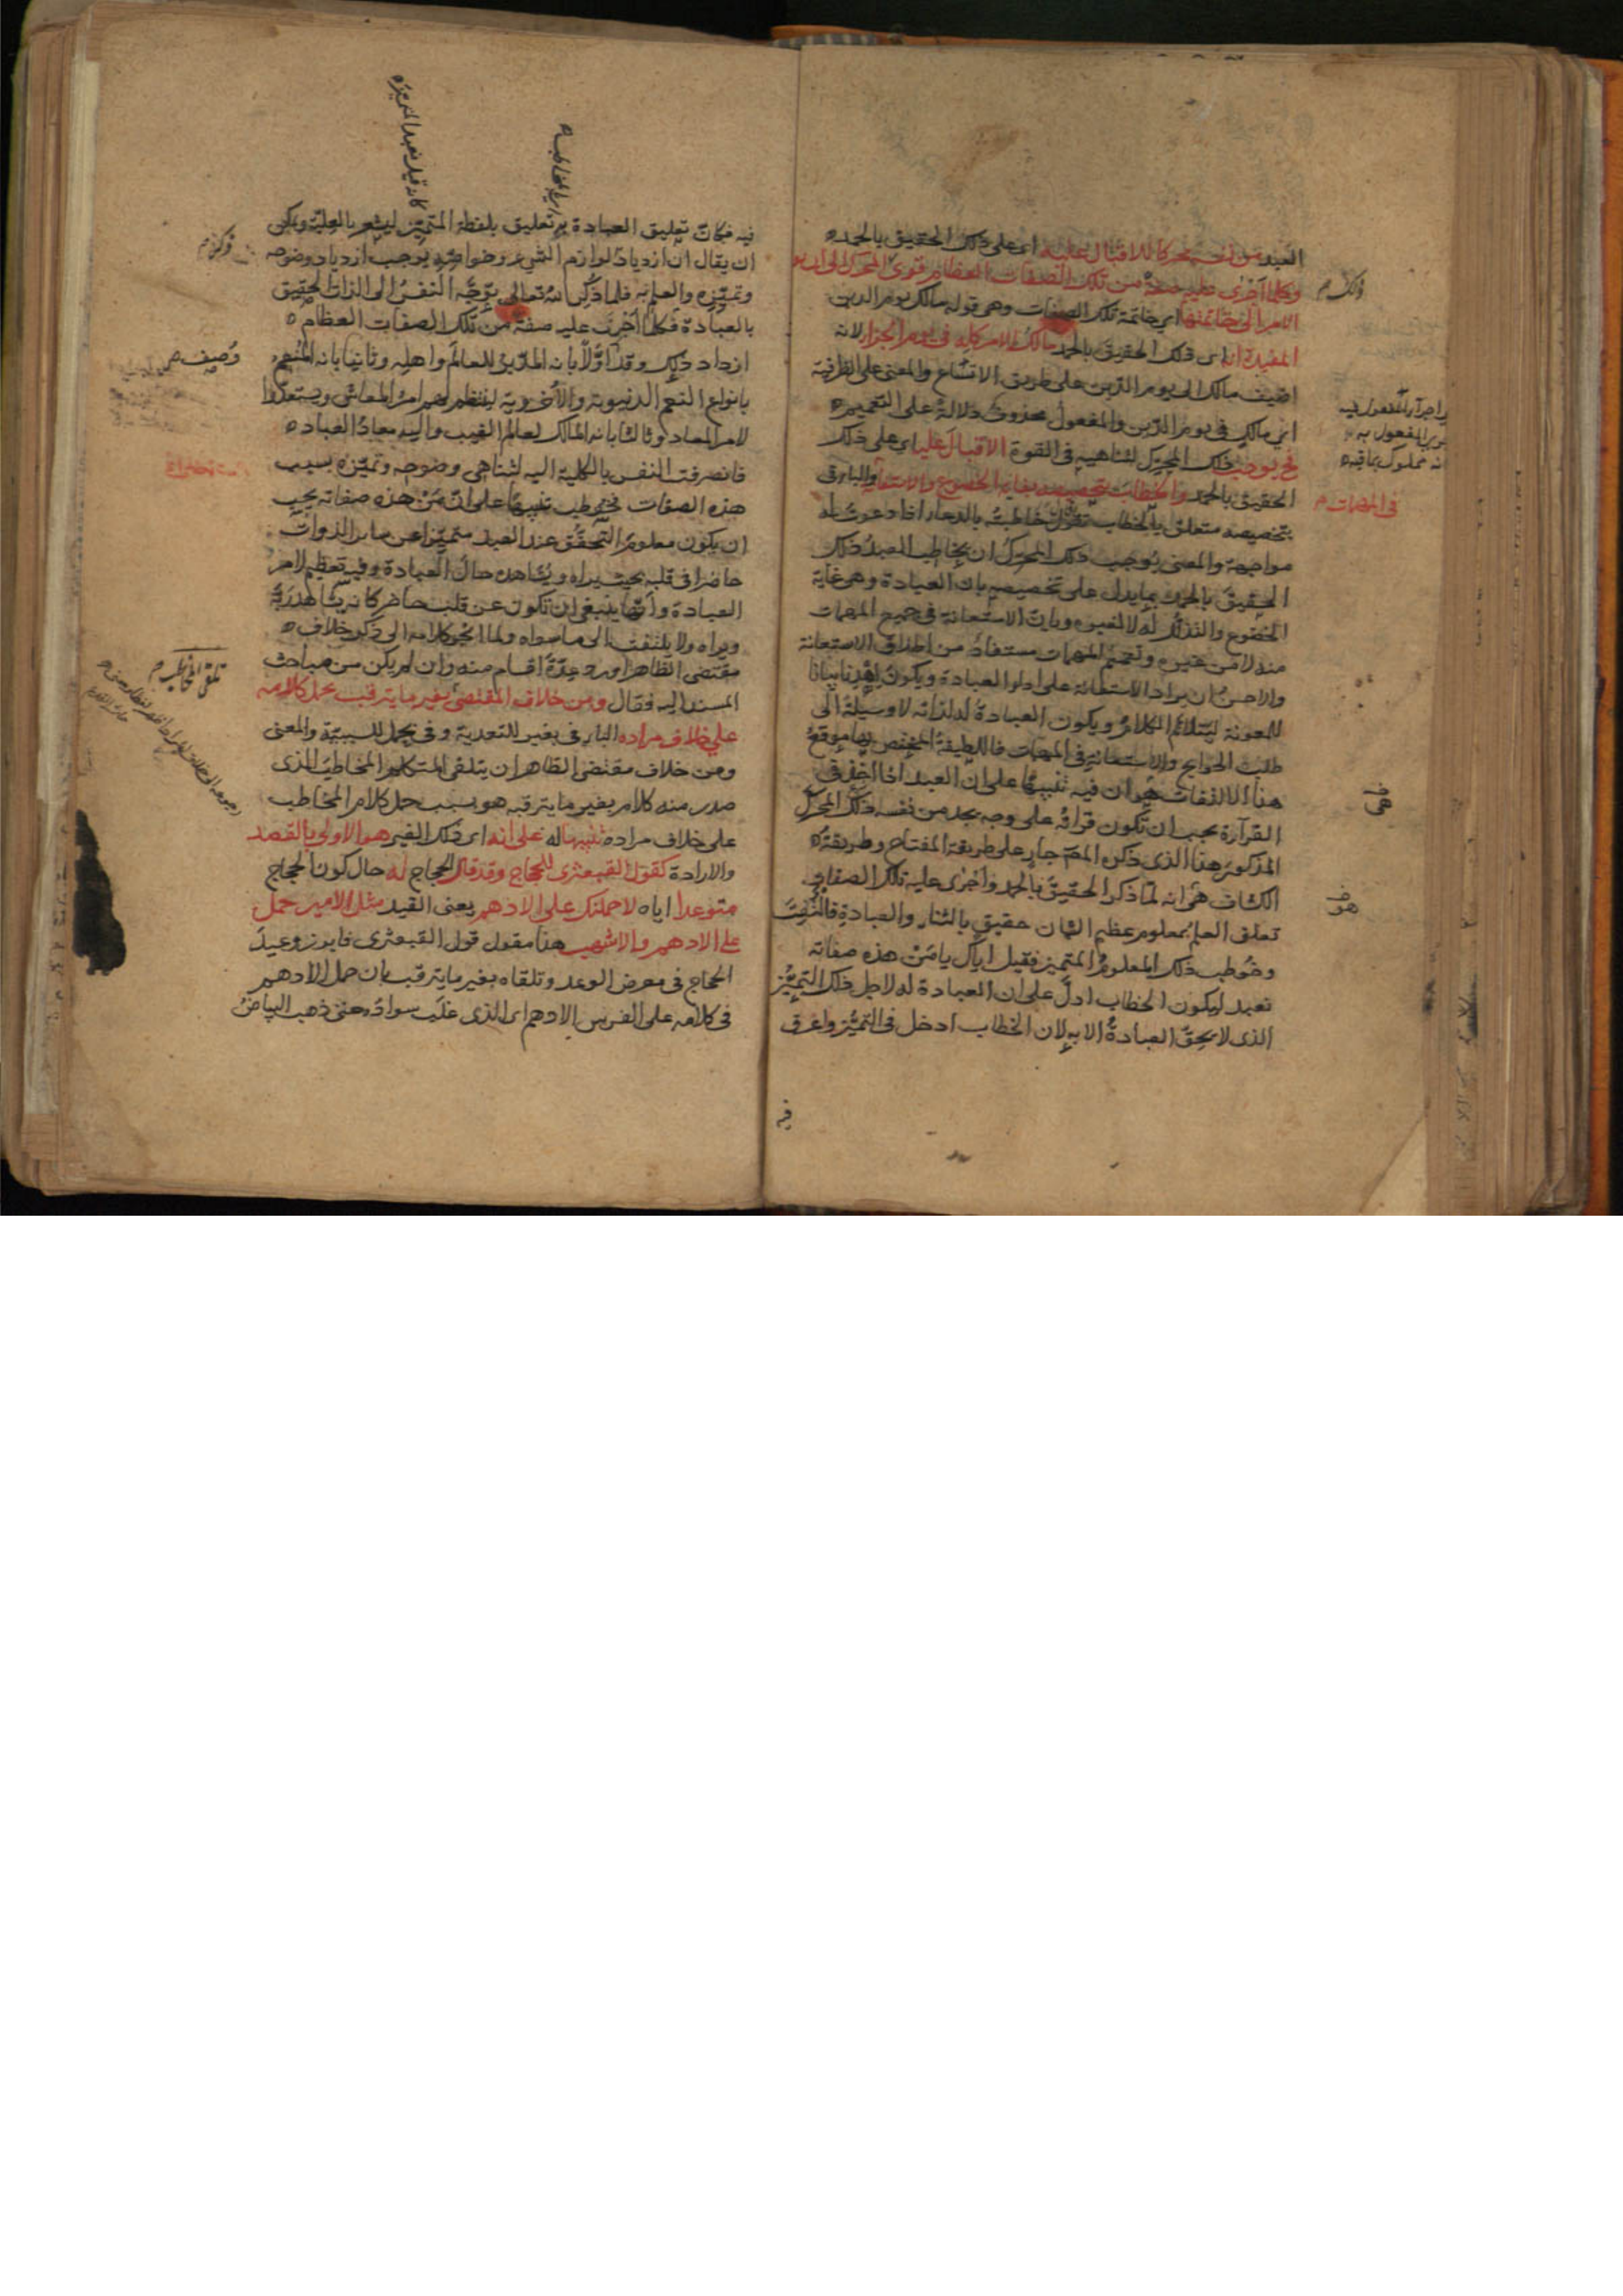 العبد من نفسه محركا للاقبال عليه اى على ذلك الحقيق بالحمد
وكلما اجرى عليه صفة من تلك الصفات العظام قوى المحرك الى ان يؤل
الامر الى خاتمتها اى خاتمة تلك الصفات وهى قوله مالك يوم الدين
المفيدة انه اى ذلك الحقيق بالحمد مالك الامر كله فى يوم الجزاء لانه
اضيف مالك الى يوم الدين على طريق الاتساع والمعنى على الظرفية
اى مالك فى يوم الدين والمفعول محذوف دلالة على التعميم
فح يوجب ذلك المحرك لتناهيه فى القوة الاقبال عليه اى على ذلك
الحقيق بالحمد والخطاب بتخصيصه بغاية الخضوع والاستعانة والباء فى
بتخصيصه متعلق بالخطاب تقول خاطبته بالدعاء اذا دعوت له
مواجهة والمعنى يوجب ذلك المحرك ان يخاطب العبد ذلك
الحقيق بالحمد بما يدل على تخصيصه بان العبادة وهى غاية
الخضوع والتذلل له لا لغيره وبان الاستعانة فى جميع المهمات
منه لا من غيره وتعميم المهمات مستفاد من اطلاق الاستعانة
والاحسن ان يراد الاستعانة على اداء العبادة ويكون اهدنا بيانا
للمعونة ليتلائم الكلام ويكون العبادة له لذاته لا وسيلة الى
طلب الحوايج والاستعانة فى المهمات فاللطيفة المختص بها موقع
هذا الالتفات هى ان فيه تنبيها على ان العبد اذا اخذ فى
القرآءة يجب ان تكون قرائه على وجه يجد من نفسه ذلك المحرك
المذكور هذا الذى ذكره المص جار على طريقة المفتاح وطريقة
الكشاف هو انه لما ذكر الحقيق بالحمد واجرى عليه تلك الصفات
تعلق العلم بمعلوم عظيم الشان حقيق بالثناء والعبادة فالتفت
وخوطب ذلك المعلوم المتميز فقيل اياك يا من هذه صفاته
نعبد ليكون الخطاب ادل على ان العبادة له لاجل ذلك التميز
الذى لا يحق العبادة الا به لان الخطاب ادخل فى التميز واعرق
فيه
ذلك
فى المهمات
هى
هو
فيه فكان تعليق العبادة به تعليق بلفظ المتميز ليشعر بالعلية ويمكن
ان يقال ان ازدياد لوازم الشىء وخواصه يوجب ازدياد وضوحه
وتميزه والعلم به فلما ذكر الله تعالى توجه النفس الى الذات الحقيق
بالعبادة فكلما اجرى عليه صفة من تلك الصفات العظام
ازداد ذلك وقد اولا بانه المدبر للعالم واهله وثانيا بانه المنعم
بانواع النعم الدنيوية والاخروية لينتظم لهم امر المعاش ويستعدوا
لامر المعاد وثالثا بانه المالك لعالم الغيب واليه معاد العباد
فانصرفت النفس بالكلية اليه لتناهى وضوحه وتميزه بسبب
هذه الصفات فخوطب تنبيها على ان من هذه صفاته يجب
ان يكون معلوم التحقق عند العبد متميزا عن سائر الذوات
حاضرا فى قلبه بحيث يراه ويشاهده حال العبادة وفيه تعظيم لامر
العبادة وانها ينبغى ان تكون عن قلب حاضر كانه يشاهد ربه
ويراه ولا يلتفت الى ما سواه ولما انجر كلامه الى ذكر خلاف
مقتضى الظاهر اورد عدة اقسام منه وان لم يكن من مباحث
المسند اليه فقال ومن خلاف المقتضى بغير ما يترقب بحمل كلامه
على خلاف مراده الباء فى بغير للتعدية وفى بحمل للسببية والمعنى
ومن خلاف مقتضى الظاهر ان يتلقى المتكلم المخاطب الذى
صدر منه كلام بغير ما يترقبه هو بسبب حمل كلام المخاطب
على خلاف مراده تنبيها له على انه اى ذلك الغير هو الاولى بالقصد
والارادة كقول القبعثرى للحجاج وقد قال الحجاج له حال كون الحجاج
متوعدا اياه لاحملنك على الادهم يعنى القيد مثل الامير حمل
على الادهم والاشهب هذا مقول قول القبعثرى فابرز وعيد
الحجاج فى معرض الوعد وتلقاه بغير ما يترقب بان حمل الادهم
فى كلامه على الفرس الادهم اى الذى غلب سواده حتى ذهب البياض
وصف
تلقى المخاطب